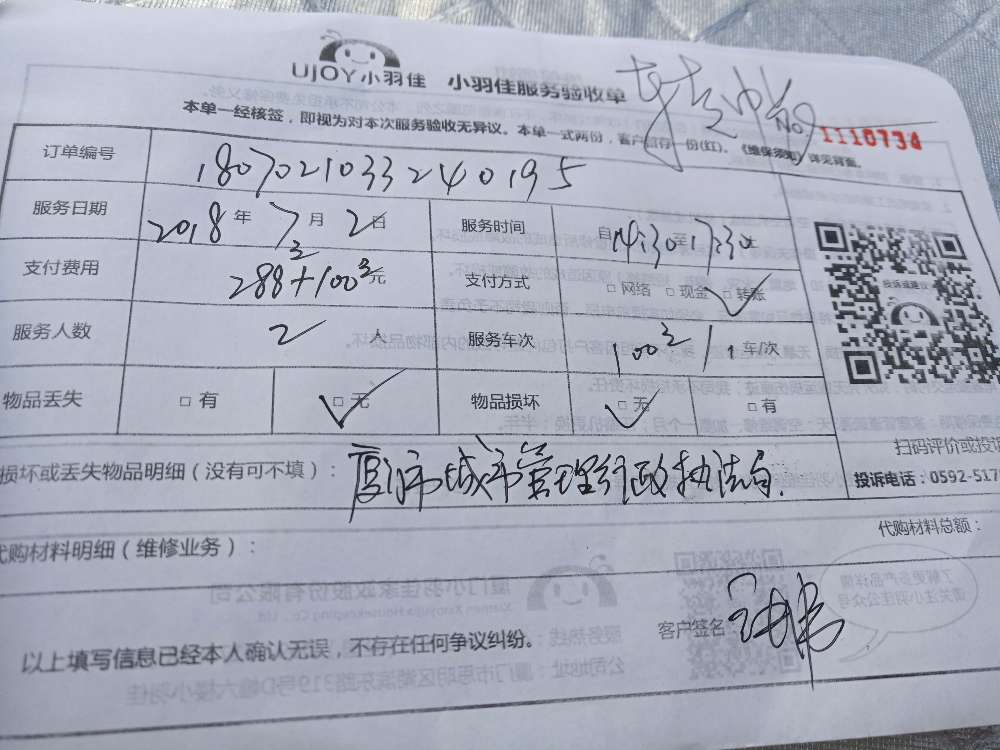 UJOY小羽佳 小羽佳服务验收单
No 1110734
本单一经核签，即视为对本次服务验收无异议。本单一式两份，客户留存一份(红)。《维保须知》详见背面。
订单编号 1807021033240195
服务日期 2018年7月2日 服务时间 自14:30至17:30
支付费用 288+100元 支付方式 □网络 □现金 □转账
服务人数 2人 服务车次 车/次
物品丢失 □有 □无 物品损坏 □无 □有
扫码评价或投诉
损坏或丢失物品明细（没有可不填）： 厦门市城市管理行政执法局
投诉电话：0592-517
代购材料明细（维修业务）： 代购材料总额：
客户签名
以上填写信息已经本人确认无误，不存在任何争议纠纷。